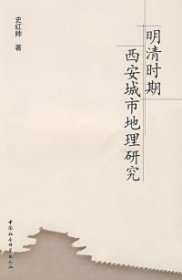 史红帅 著
明清时期
西安城市地理研究
中国社会科学出版社